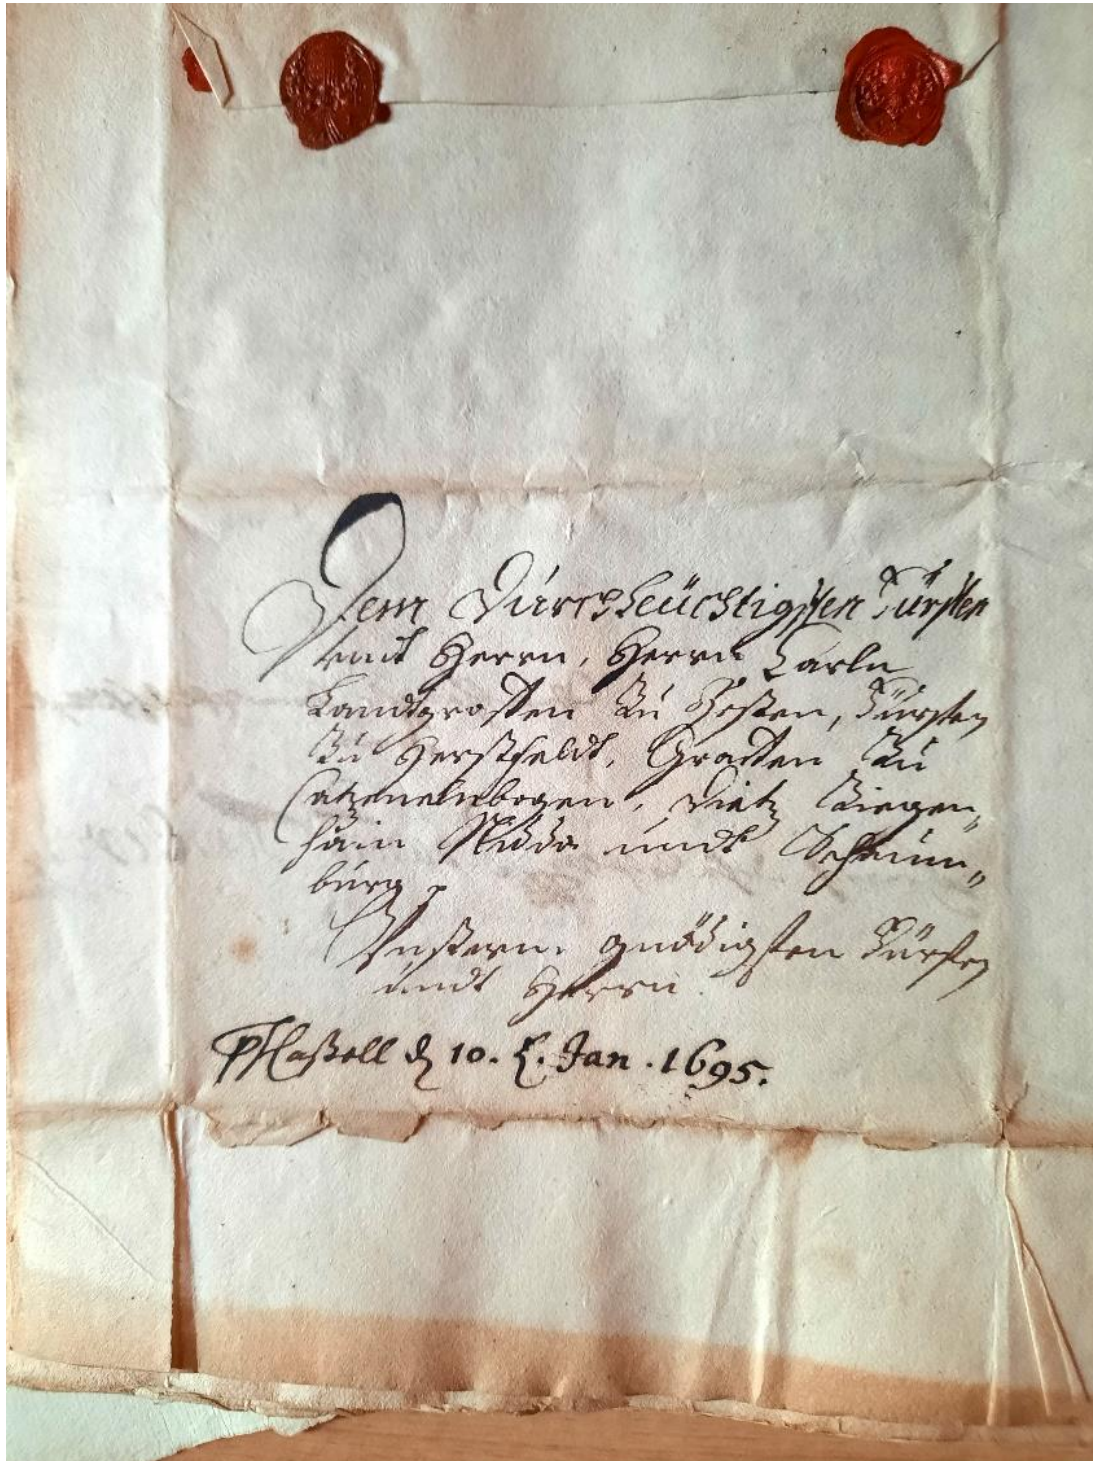 Dem Durchleüchtigsten Fürsten
undt Herrn, Herrn Carln
Landtgraffen zu Heßen, Fürsten
zu Herßfeldt, Graffen zu
Catzenelnbogen, Dietz Ziegen„
hain Nidda undt Schaum„
burg
Unßerm gnädigsten Fürsten
undt Herrn.
Caßell d 10. Jan. 1695.